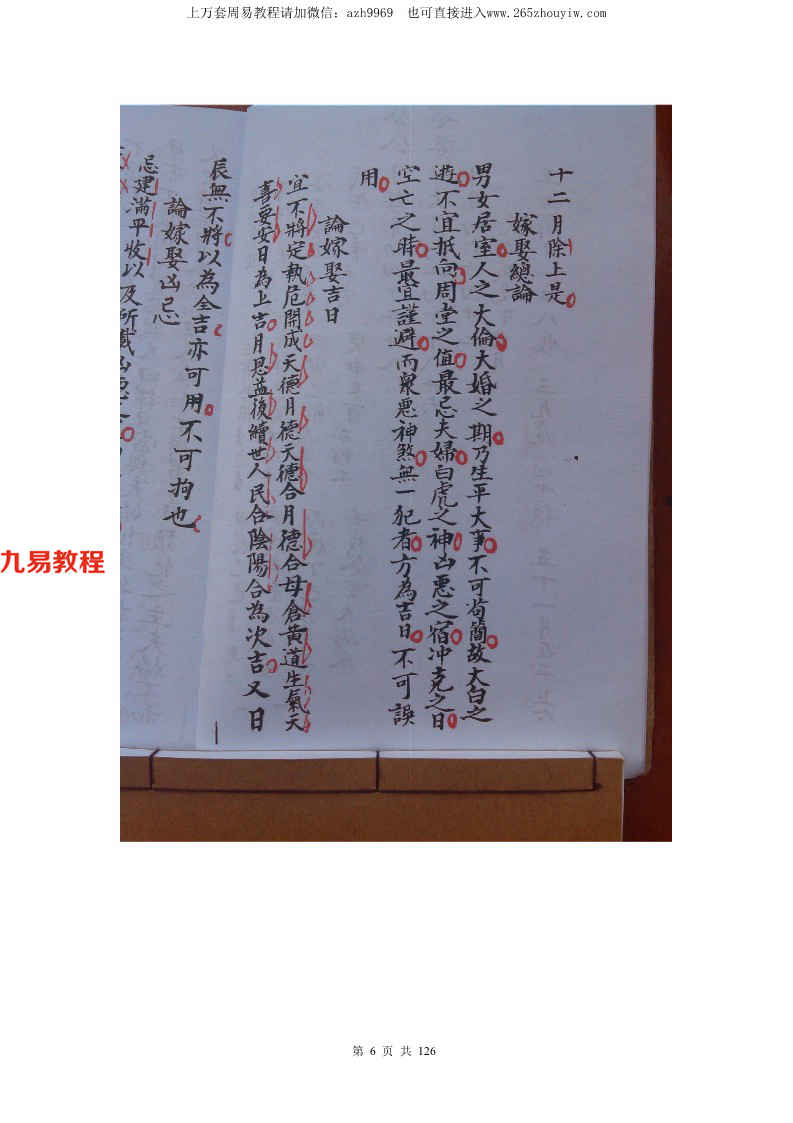 上万套周易教程请加微信：azh9969 也可直接进入www.265zhouyiw.com
十二月除上是
嫁娶總論
男女居室人之大倫大婚之期乃生平大事不可苟簡故大白之
遊不宜抵向周堂之值最忌夫婦白虎之神凶惡之宿冲克之日
空亡之時最宜謹避而衆惡神煞無一犯者方為吉日不可誤
用
論嫁娶吉日
宜不將定執危開成天德月德天德合月德合母倉黄道生氣天
喜要安日為上吉月恩益後續世人民合陰陽合為次吉又日
辰無不將以為全吉亦可用不可拘也
論嫁娶凶忌
忌建滿平收以及所載凶
九易教程
第 6 页 共 126